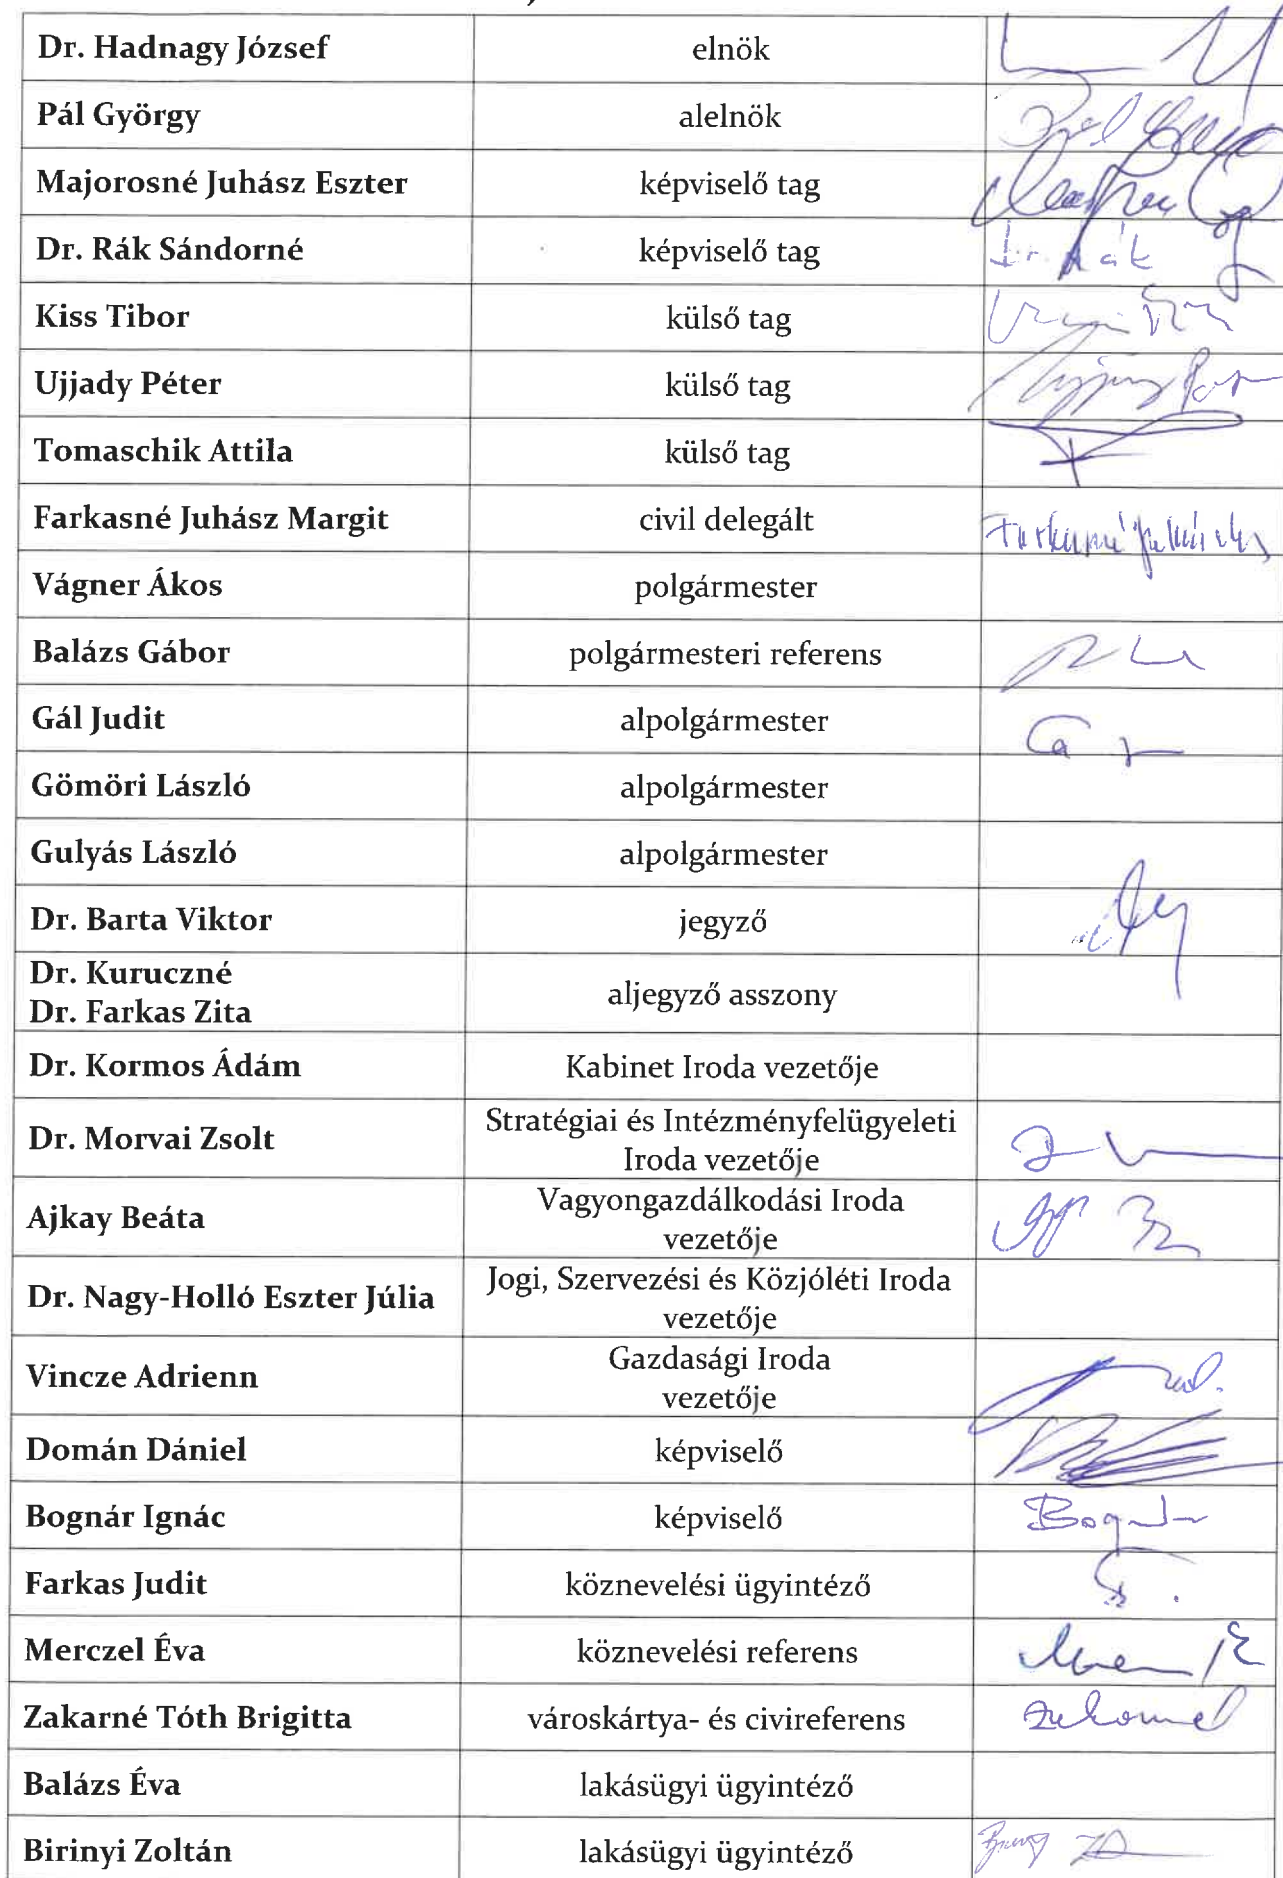 Dr. Hadnagy József elnök
Pál György alelnök
Majorosné Juhász Eszter képviselő tag
Dr. Rák Sándorné képviselő tag Dr. Rák
Kiss Tibor külső tag
Ujjady Péter külső tag
Tomaschik Attila külső tag
Farkasné Juhász Margit civil delegált
Vágner Ákos polgármester
Balázs Gábor polgármesteri referens
Gál Judit alpolgármester
Gömöri László alpolgármester
Gulyás László alpolgármester
Dr. Barta Viktor jegyző
Dr. Kuruczné
Dr. Farkas Zita aljegyző asszony
Dr. Kormos Ádám Kabinet Iroda vezetője
Dr. Morvai Zsolt Stratégiai és Intézményfelügyeleti
Iroda vezetője
Ajkay Beáta Vagyongazdálkodási Iroda
vezetője
Dr. Nagy-Holló Eszter Júlia Jogi, Szervezési és Közjóléti Iroda
vezetője
Vincze Adrienn Gazdasági Iroda
vezetője
Domán Dániel képviselő
Bognár Ignác képviselő
Farkas Judit köznevelési ügyintéző
Merczel Éva köznevelési referens
Zakarné Tóth Brigitta városkártya- és civireferens
Balázs Éva lakásügyi ügyintéző
Birinyi Zoltán lakásügyi ügyintéző